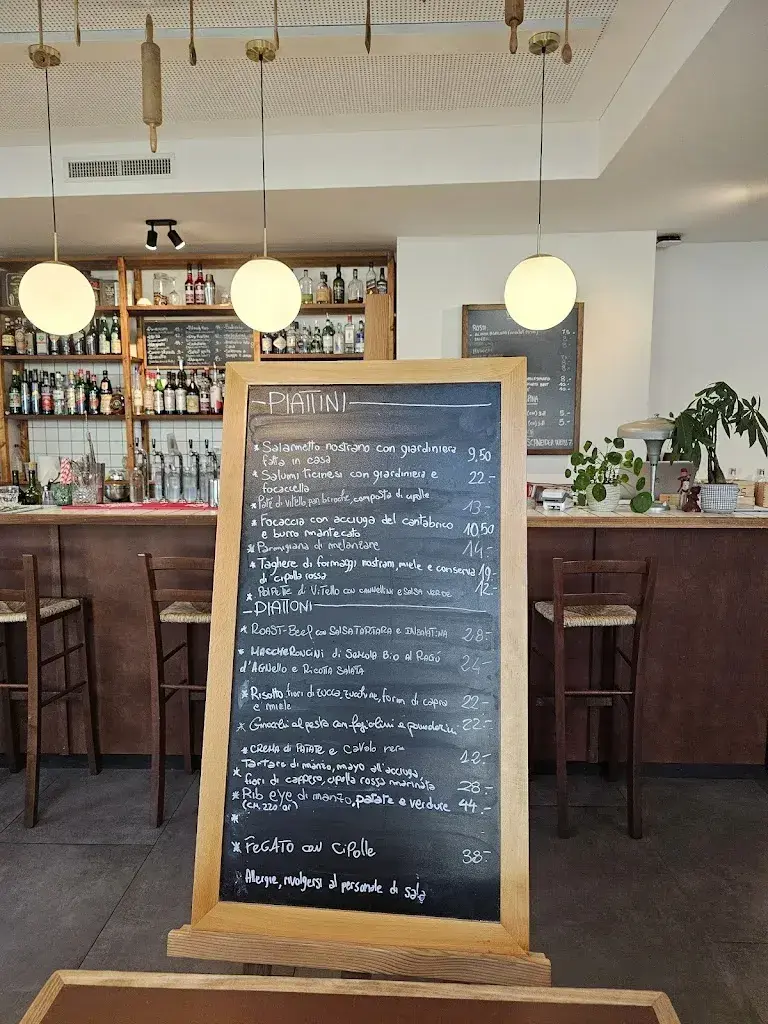 PIATTINI
* Salametto nostrano con giardiniera
fatta in casa 9,50
* Salumi ticinesi con giardiniera e
focaccella 22.-
* Paté di vitello, pan brioche, composta di cipolle 13.-
* Focaccia con acciuga del cantabrico
e burro mantecato 10,50
* Parmigiana di melanzane 14.-
* Tagliere di formaggi nostrani, miele e conserva
di cipolla rossa 19.-
* Polpette di Vitello con cannellini e salsa verde 12.-
PIATTONI
* ROAST-Beef con SALSA TARTARA e INSALATINA 28.-
* MACCHERONCINI di Semola Bio al Ragù
d'AGNello e Ricotta Salata 24.-
* Risotto fiori di zucca, zucchine, form. di capra
e miele 22.-
* Gnocchi al pesto con fagiolini e pomodorini 22.-
* CREMA di PATATE e Cavolo nero 12.-
Tartare di manzo, mayo all'acciuga,
* fiori di cappero, cipolla rossa marinata 28.-
* Rib eye di manzo, patate e verdure 44.-
(CH, 220 gr)
*
* FEGATO con Cipolle 38.-
Allergie, rivolgersi al personale di sala